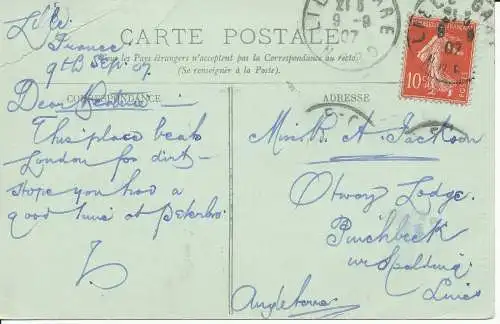 Lille
France
9th Sep. 07.
CARTE POSTALE
Tous les Pays étrangers n'acceptent pas la Correspondance au recto
(Se renseigner à la Poste).
CORRESPONDANCE
Dear
This place beats
London for dirt –
Hope you had a
good time at Peterbro.
ADRESSE
Miss K. A. Jackson
Otway Lodge.
Pinchbeck
nr Spalding
Lincs
Angleterre
LILLE GARE
21 5
9 - 9
07
10